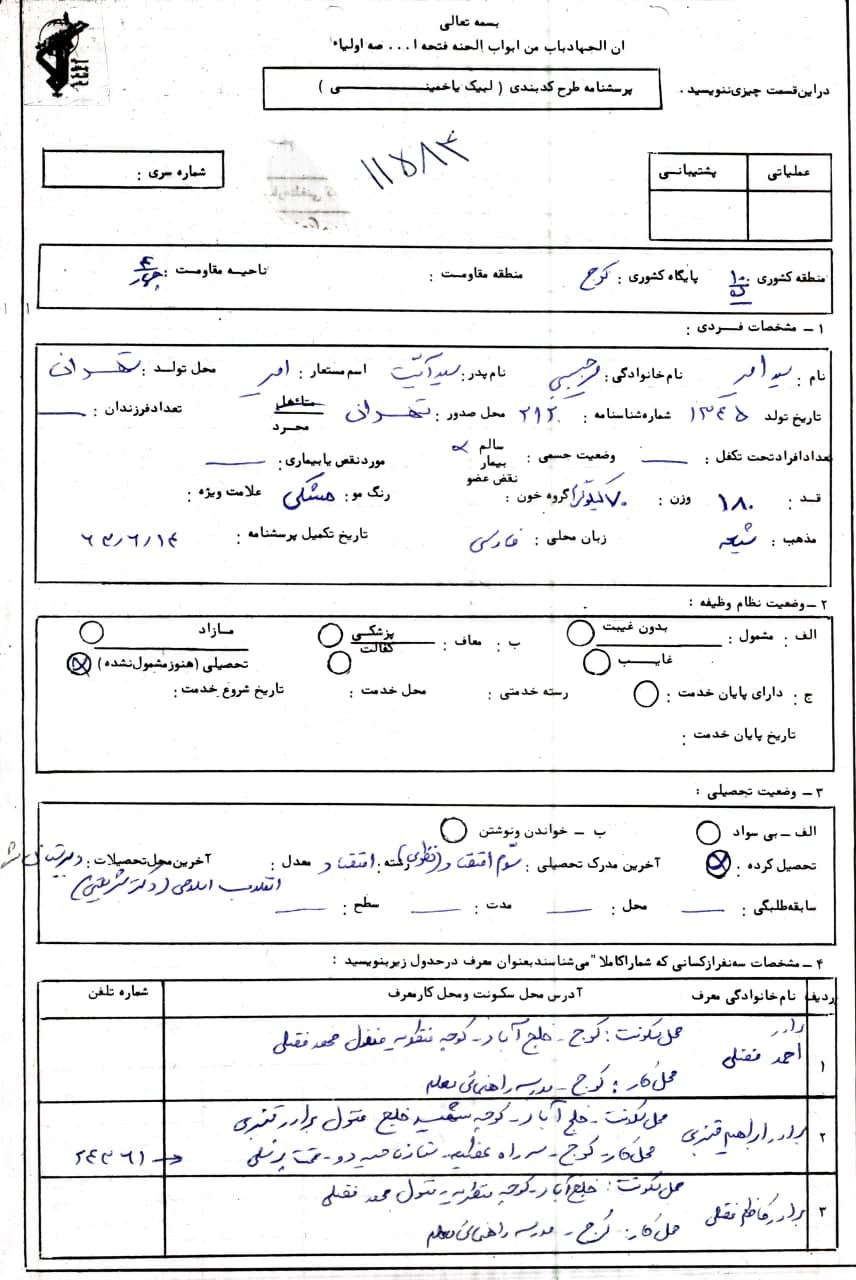 بسمه تعالی
ان الجهادباب من ابواب الجنه فتحه ا... صه اولیاء
دراین‌قسمت چیزی‌ننویسید .
پرسشنامه طرح کدبندی ( لبیک یاخمینــــی )
۱۱۵۸۳
شماره سری :
عملیاتی
پشتیبانی
منطقه کشوری ۱۰ پایگاه کشوری : کرج منطقه مقاومت : ناحیه مقاومت : ۴ چهار
۱ - مشخصات فردی :
نام : سید امیر نام‌خانوادگی : نام پدر: سید اسم‌مستعار : امیر محل تولد : تهران
تاریخ تولد ۱۳۴۵ شماره‌شناسنامه : ۲۱۲ محل صدور : تهران متأهل مجرد تعدادفرزندان :
تعدادافرادتحت تکفل : وضعیت جسمی : سالم بیمار نقص عضو موردنقص یابیماری :
قد : ۱۸۰ وزن : ۷۰ کیلوگرم گروه خون : رنگ مو : مشکی علامت ویژه :
مذهب : شیعه زبان محلی : فارسی تاریخ تکمیل پرسشنامه : ۶۳/۶/۱۴
۲ - وضعیت نظام وظیفه :
الف : مشمول : بدون غیبت ب : معاف : پزشکی مازاد
غایب کفالت تحصیلی (هنوزمشمول‌نشده)
ج : دارای پایان خدمت : رسته خدمتی : محل خدمت : تاریخ شروع خدمت :
تاریخ پایان خدمت :
۳ - وضعیت تحصیلی :
الف - بی سواد ب - خواندن ونوشتن
تحصیل کرده : آخرین مدرک تحصیلی : سوم اقتصاد (نظری) رشته : اقتصاد معدل : آخرین‌محل‌تحصیلات : دبیرستان
انقلاب اسلامی (دکتر شریعتی)
سابقه‌طلبگی : محل : مدت : سطح :
۴ - مشخصات سه‌نفرازکسانی که شماراکاملا" می‌شناسندبعنوان معرف درجدول زیربنویسید :
ردیف نام‌خانوادگی معرف آدرس محل سکونت ومحل کارمعرف شماره تلفن
۱ برادر احمد فضلی محل سکونت : کرج - خلج آباد - کوچه منزل محمد فضلی
محل کار : کرج - مدرسه راهنمائی معلم
۲ برادر ابراهیم قنبری محل سکونت - خلج آباد - کوچه شهید خلج منزل برادر قنبری
محل کار - کرج - سه راه ۲۴۳۶۱
۳ برادر کاظم فضلی محل سکونت : خلج‌آباد - کوچه منزل محمد فضلی
محل کار : کرج - مدرسه راهنمائی معلم